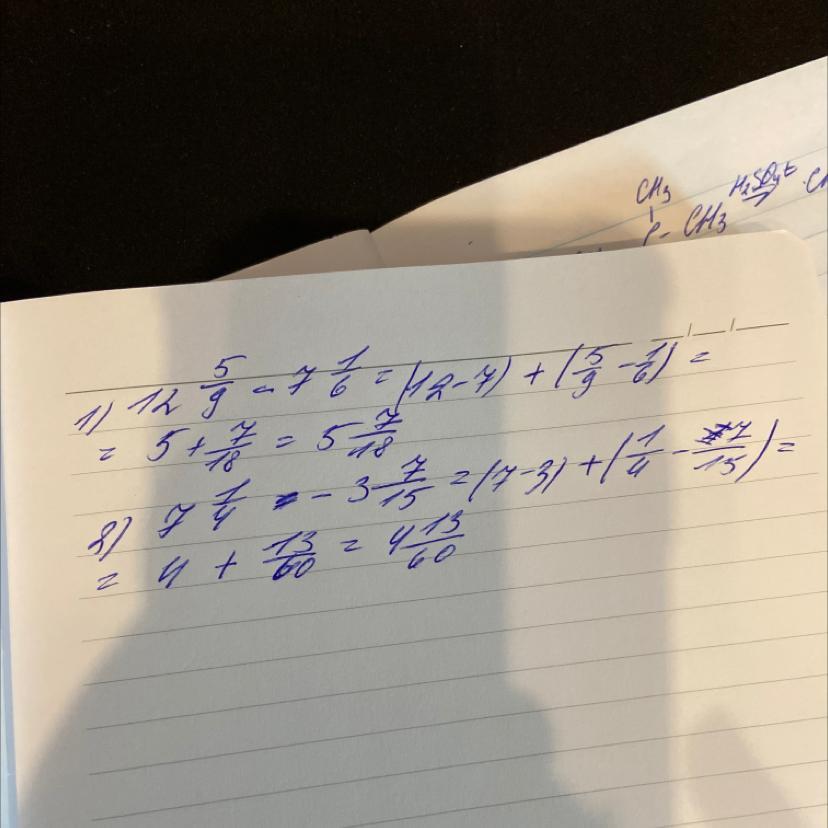 CH₃
C - CH₃ H₂SO₄, t →
1) 12 5/9 - 7 1/6 = (12 - 7) + (5/9 - 1/6) =
= 5 + 7/18 = 5 7/18
2) 7 1/4 - 3 7/15 = (7 - 3) + (1/4 - 7/15) =
= 4 + 13/60 = 4 13/60